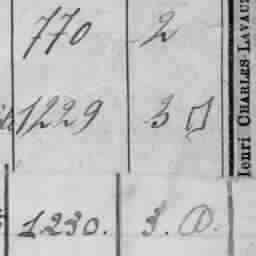 770 2
1229 3 D
1230. 3. D.
Henri CHARLES-LAVAU